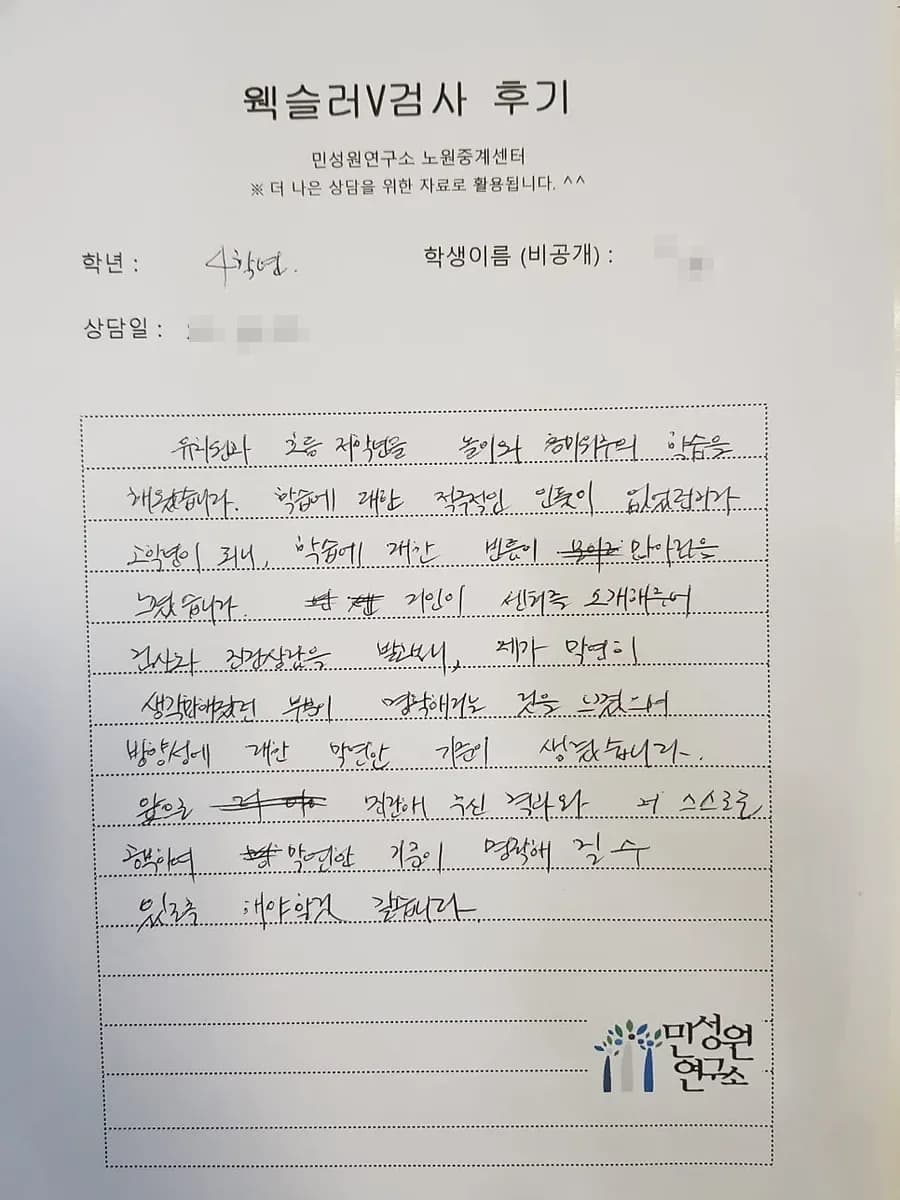 웩슬러V검사 후기
민성원연구소 노원중계센터
※ 더 나은 상담을 위한 자료로 활용됩니다. ^^
학년 : 4학년.
학생이름 (비공개) :
상담일 :
유치원과 초등 저학년을 놀이와 흥미위주의 학습을
해왔습니다. 학습에 대한 적극적인 인풋이 없었던지라
고학년이 되니, 학습에 대한 반응이 만이란을
느꼈습니다. 지인이 센터를 소개해주어
검사와 진검상담을 받고보니, 제가 막연히
생각만해왔던 부분이 명확해지는 것을 느꼈으며
방향성에 대한 막연한 기준이 생겼습니다.
앞으로 민관해 주신 결과와 더 스스로를
공부하여 막연한 기준이 명확해 질 수
있도록 해야할것 같습니다.
민성원
연구소